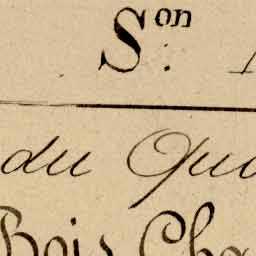 Son :
du Qu
Bois Cha